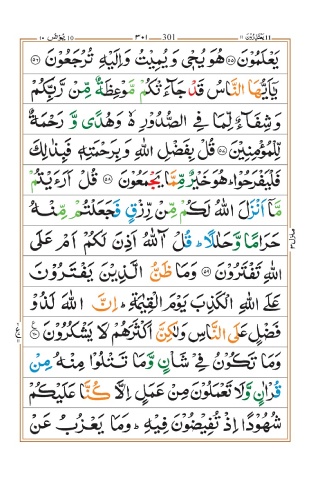 يونس ١٠ ٣٠١ 301 يعتذرون ١١
يَعْلَمُوْنَ ﴿۵۵﴾ هُوَ يُحْيٖ وَ يُمِيْتُ وَ اِلَيْهِ تُرْجَعُوْنَ ﴿۵۶﴾
يٰۤاَيُّهَا النَّاسُ قَدْ جَآءَتْكُمْ مَّوْعِظَةٌ مِّنْ رَّبِّكُمْ
وَ شِفَآءٌ لِّمَا فِى الصُّدُوْرِ ۙ وَ هُدًى وَّ رَحْمَةٌ
لِّلْمُؤْمِنِيْنَ ﴿۵۷﴾ قُلْ بِفَضْلِ اللّٰهِ وَ بِرَحْمَتِهٖ فَبِذٰلِكَ
فَلْيَفْرَحُوْا ؕ هُوَ خَيْرٌ مِّمَّا يَجْمَعُوْنَ ﴿۵۸﴾ قُلْ اَرَءَيْتُمْ
مَّاۤ اَنْزَلَ اللّٰهُ لَكُمْ مِّنْ رِّزْقٍ فَجَعَلْتُمْ مِّنْهُ
حَرَامًا وَّ حَلٰلًا ؕ قُلْ آٰللّٰهُ اَذِنَ لَكُمْ اَمْ عَلَى
اللّٰهِ تَفْتَرُوْنَ ﴿۵۹﴾ وَ مَا ظَنُّ الَّذِيْنَ يَفْتَرُوْنَ
عَلَى اللّٰهِ الْكَذِبَ يَوْمَ الْقِيٰمَةِ ؕ اِنَّ اللّٰهَ لَذُوْ
فَضْلٍ عَلَى النَّاسِ وَ لٰكِنَّ اَكْثَرَهُمْ لَا يَشْكُرُوْنَ ﴿۶۰﴾
وَ مَا تَكُوْنُ فِىْ شَاْنٍ وَّ مَا تَتْلُوْا مِنْهُ مِنْ
قُرْاٰنٍ وَّ لَا تَعْمَلُوْنَ مِنْ عَمَلٍ اِلَّا كُنَّا عَلَيْكُمْ
شُهُوْدًا اِذْ تُفِيْضُوْنَ فِيْهِ ؕ وَ مَا يَعْزُبُ عَنْ